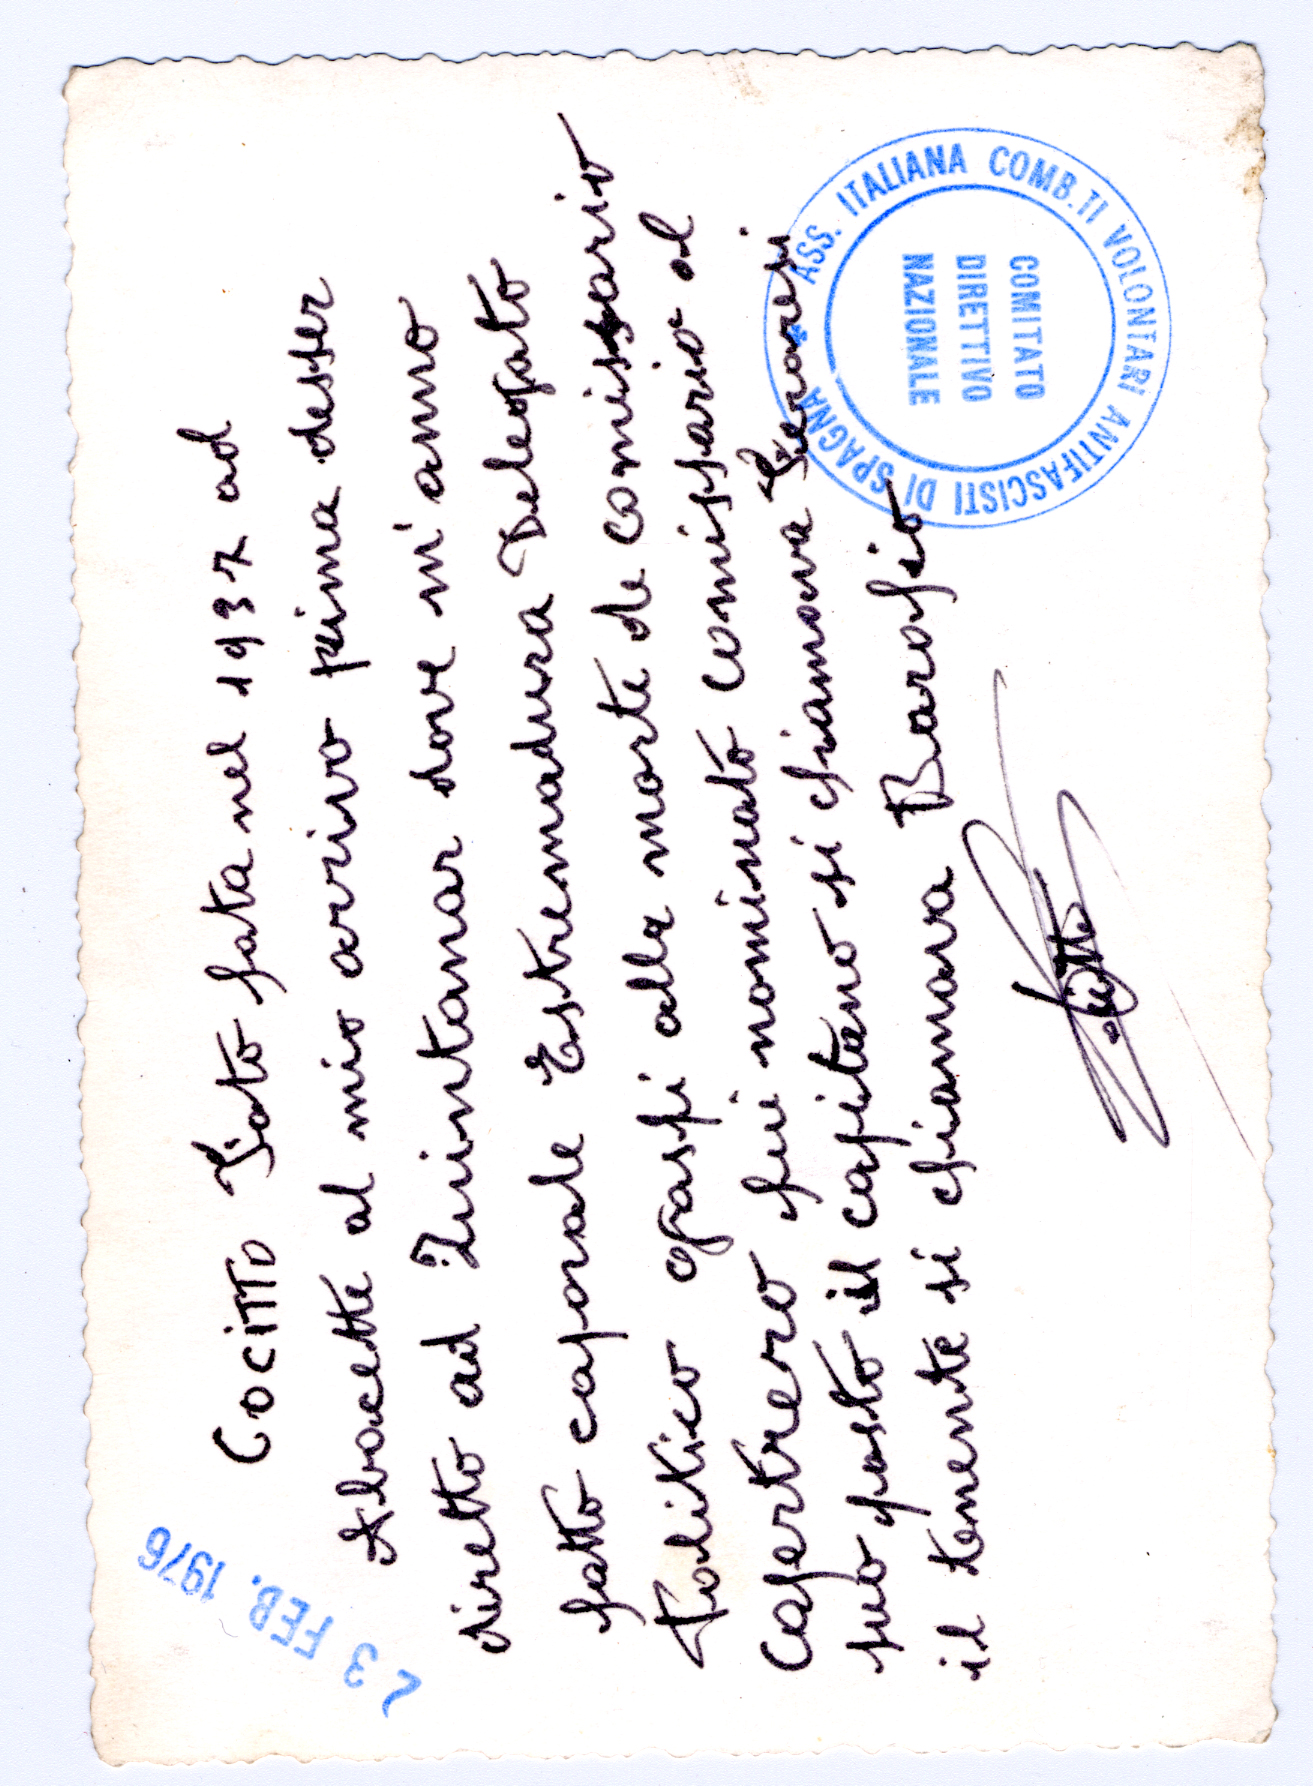 COCITTO Foto fata nel 1937 ad
Albacette al mio arrivo prima desser
diretto ad Quintanar dove m'anno
fatto caporale Estremadura Delegato
Politico e graspi alla morte de comissario
Capertrero fui nominato comissario al
suo posto il capitano si chiamava
il tenente si chiamava Barofio
23 FEB. 1976
ASS. ITALIANA COMB.TI VOLONTARI ANTIFASCISTI DI SPAGNA
COMITATO
DIRETTIVO
NAZIONALE